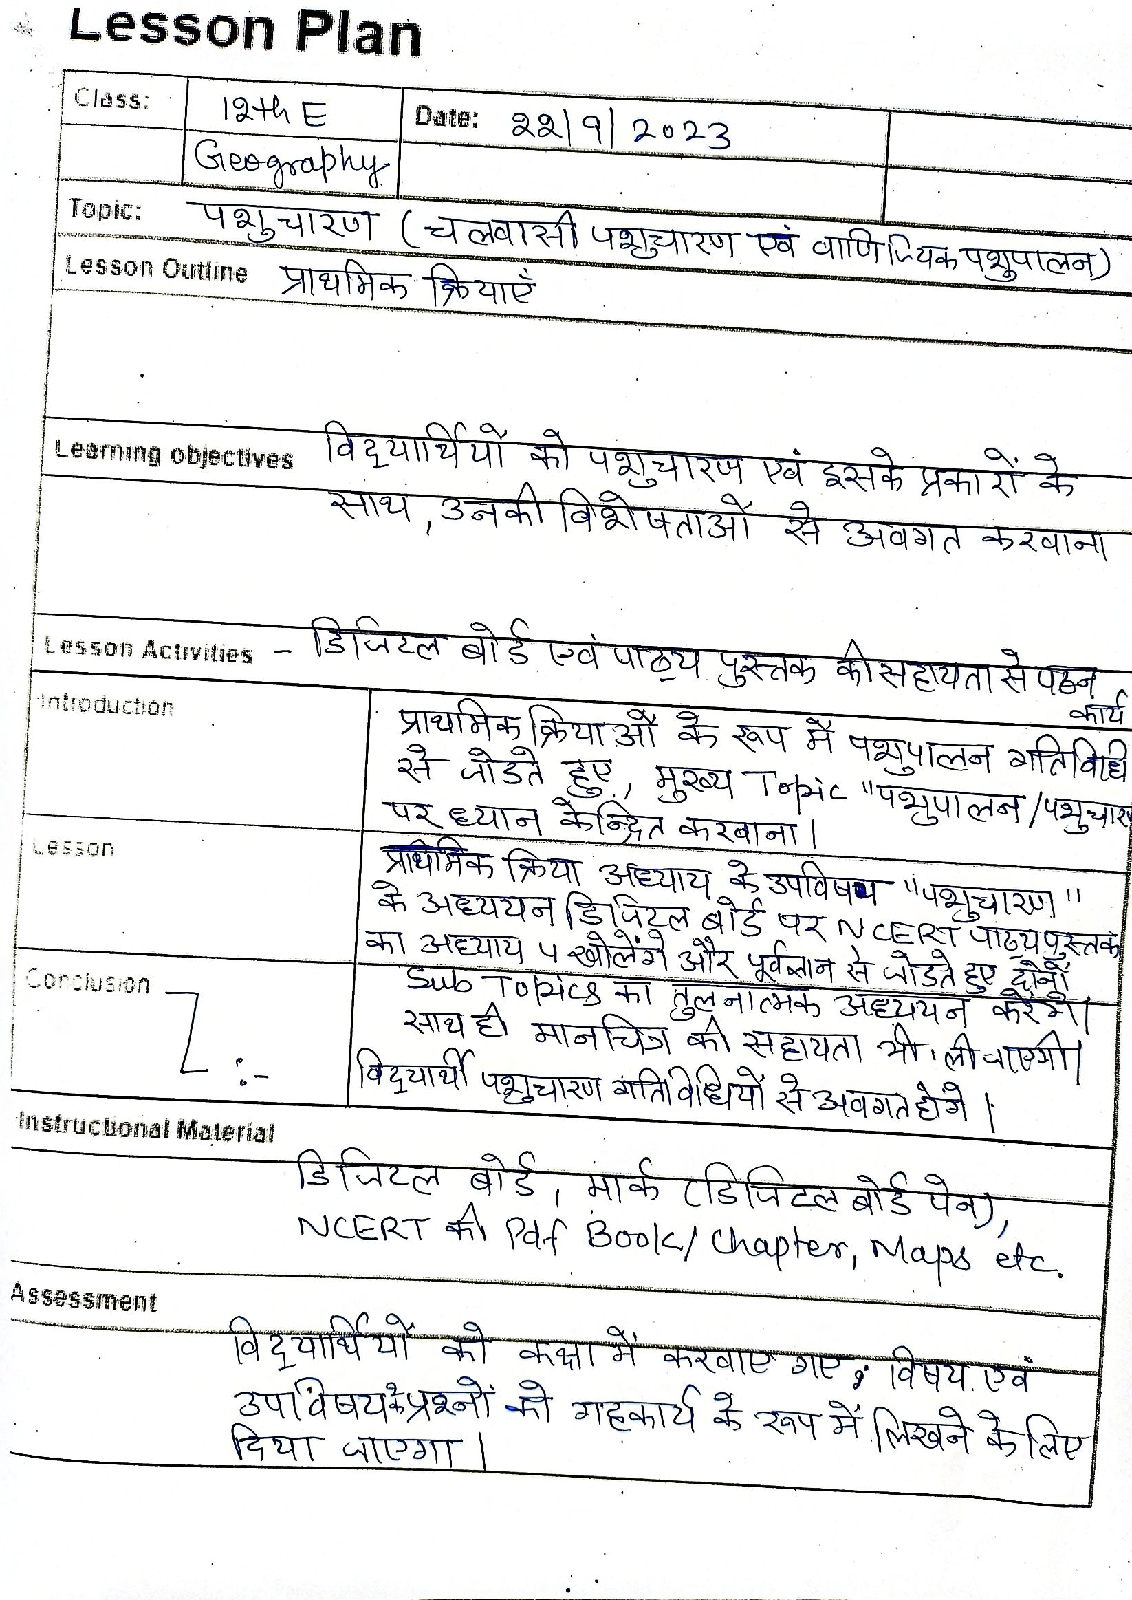 Lesson Plan
Class: 12th E Date: 22/9/2023
Geography
Topic: पशुचारण (चलवासी पशुचारण एवं वाणिज्यिक पशुपालन)
Lesson Outline प्राथमिक क्रियाएँ
Learning objectives विद्यार्थियों को पशुचारण एवं इसके प्रकारों के
साथ, उनकी विशेषताओं से अवगत करवाना
Lesson Activities - डिजिटल बोर्ड एवं पाठ्य पुस्तक की सहायता से पठन
कार्य
Introduction
प्राथमिक क्रियाओं के रूप में पशुपालन गतिविधि
से जोडते हुए, मुख्य Topic "पशुपालन/पशुचारण
पर ध्यान केन्द्रित करवाना।
Lesson
प्राथमिक क्रिया अध्याय के उपविषय "पशुचारण"
के अध्ययन डिजिटल बोर्ड पर NCERT पाठ्यपुस्तक
का अध्याय 5 खोलेंगे और पूर्वज्ञान से जोडते हुए दोनों
Conclusion :-
Sub Topics का तुलनात्मक अध्ययन करेंगे।
साथ ही मानचित्र की सहायता भी ली जाएगी।
विद्यार्थी पशुचारण गतिविधियों से अवगत होंगे।
Instructional Material
डिजिटल बोर्ड, मार्क (डिजिटल बोर्ड पेन),
NCERT की Pdf Book/Chapter, Maps etc.
Assessment
विद्यार्थियों को कक्षा में करवाए गए विषय एवं
उपविषय के प्रश्नों को गहकार्य के रूप में लिखने के लिए
दिया जाएगा।